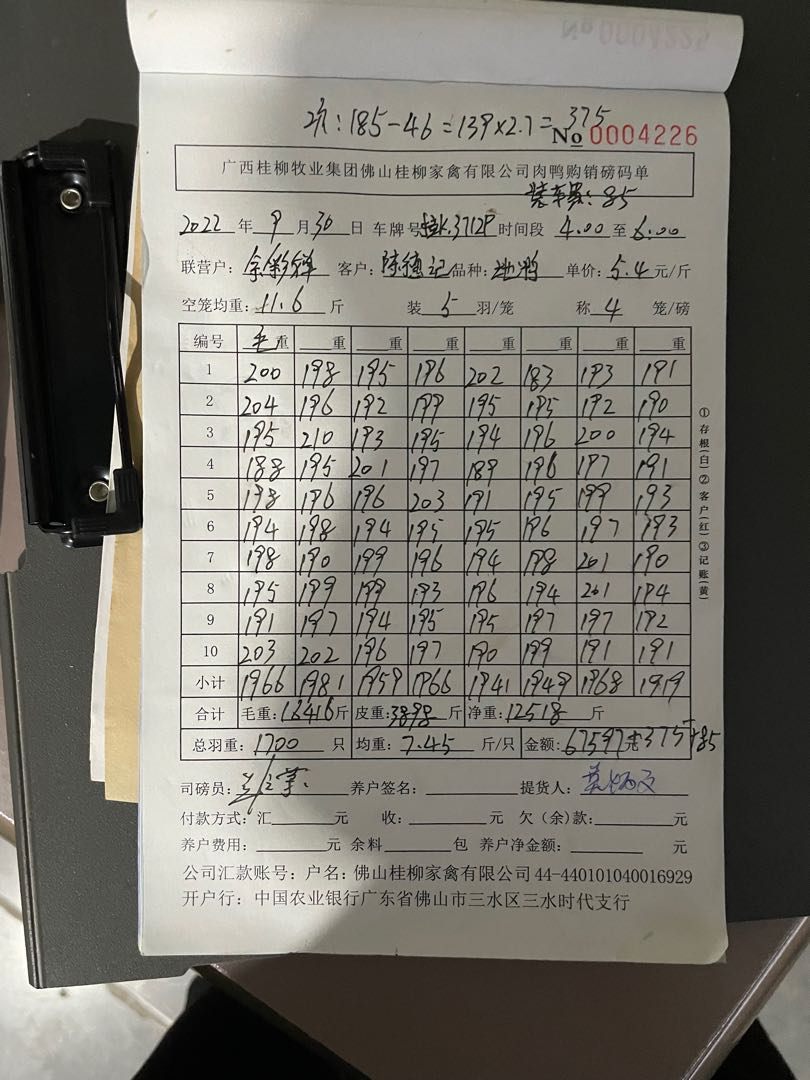 坑：185-46=139×2.7=375
No 0004226
广西桂柳牧业集团佛山桂柳家禽有限公司肉鸭购销磅码单
装车费：85
2022 年 9 月 30 日 车牌号 3712P 时间段 4.00 至 6.00
联营户： 客户：陈德记 品种： 单价：5.4 元/斤
空笼均重：11.6 斤 装 5 羽/笼 称 4 笼/磅
编号 毛重 重 重 重 重 重 重 重
1 200 198 195 196 202 183 193 191
2 204 196 192 199 195 195 192 190
3 195 210 193 195 194 196 200 194
4 188 195 201 197 189 196 197 191
5 198 196 196 203 191 195 199 193
6 194 198 194 195 195 196 197 193
7 198 190 199 196 194 198 201 190
8 195 199 199 193 196 194 201 184
9 191 197 194 195 195 197 197 192
10 203 202 196 197 190 199 191 191
小计 1966 1981 1959 1966 1941 1949 1968 1919
合计 毛重：16416 斤 皮重：3898 斤 净重：12518 斤
总羽重：1700 只 均重：7.45 斤/只 金额：67597 元 375+85
司磅员： 养户签名： 提货人：
付款方式：汇 元 收： 元 欠（余）款： 元
养户费用： 元 余料 包 养户净金额： 元
公司汇款账号：户名：佛山桂柳家禽有限公司 44-440101040016929
开户行：中国农业银行广东省佛山市三水区三水时代支行
①存根(白)②客户(红)③记账(黄)